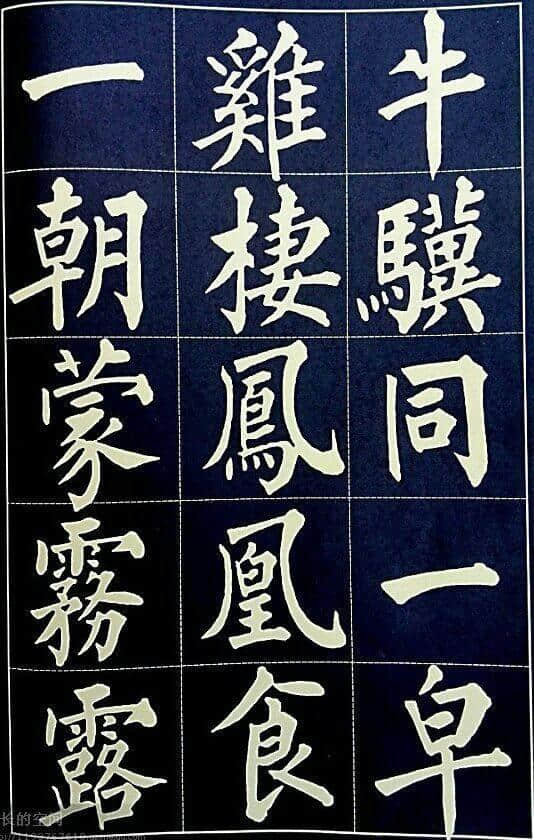 牛驥同一皁
雞棲鳳凰食
一朝蒙霧露
长的空间